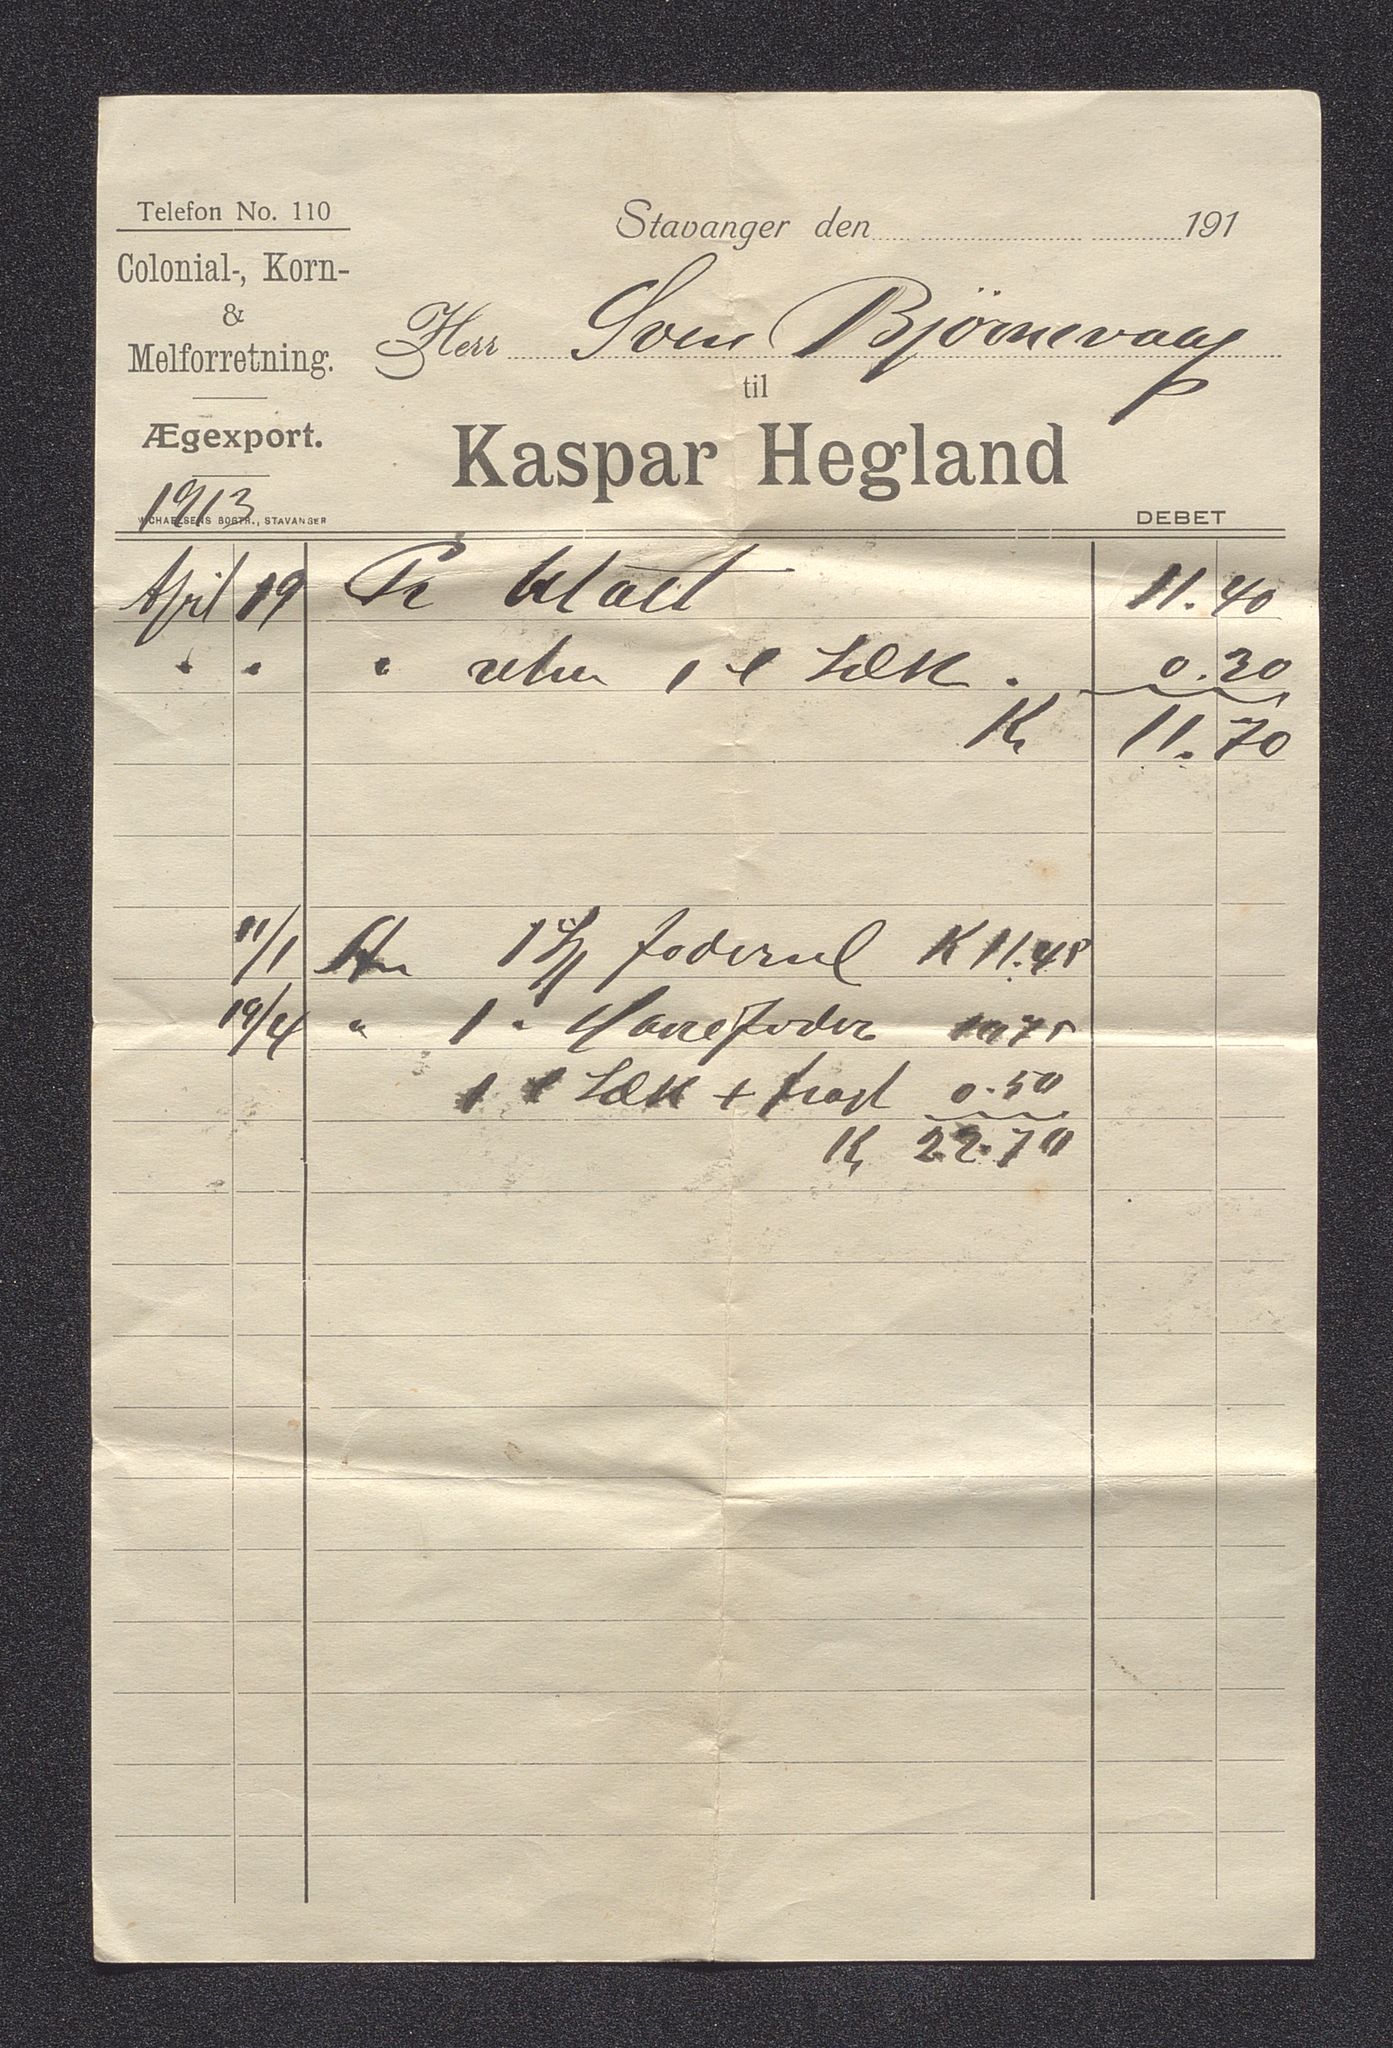 Telefon No. 110
Colonial-, Korn-
&
Melforretning.
Ægexport.
Stavanger den 191
Herr Sven Bjørnevaag
til
Kaspar Hegland
1913
MICHAELSENS BOGTR., STAVANGER
DEBET
April 19 Pr 11.40
" " " 1 Sæk 0.30
Kr 11.70
11/1 An 1 K 11.45
19/4 " 1 " 10.75
1 Sæk + fragt 0.50
Kr 22.70